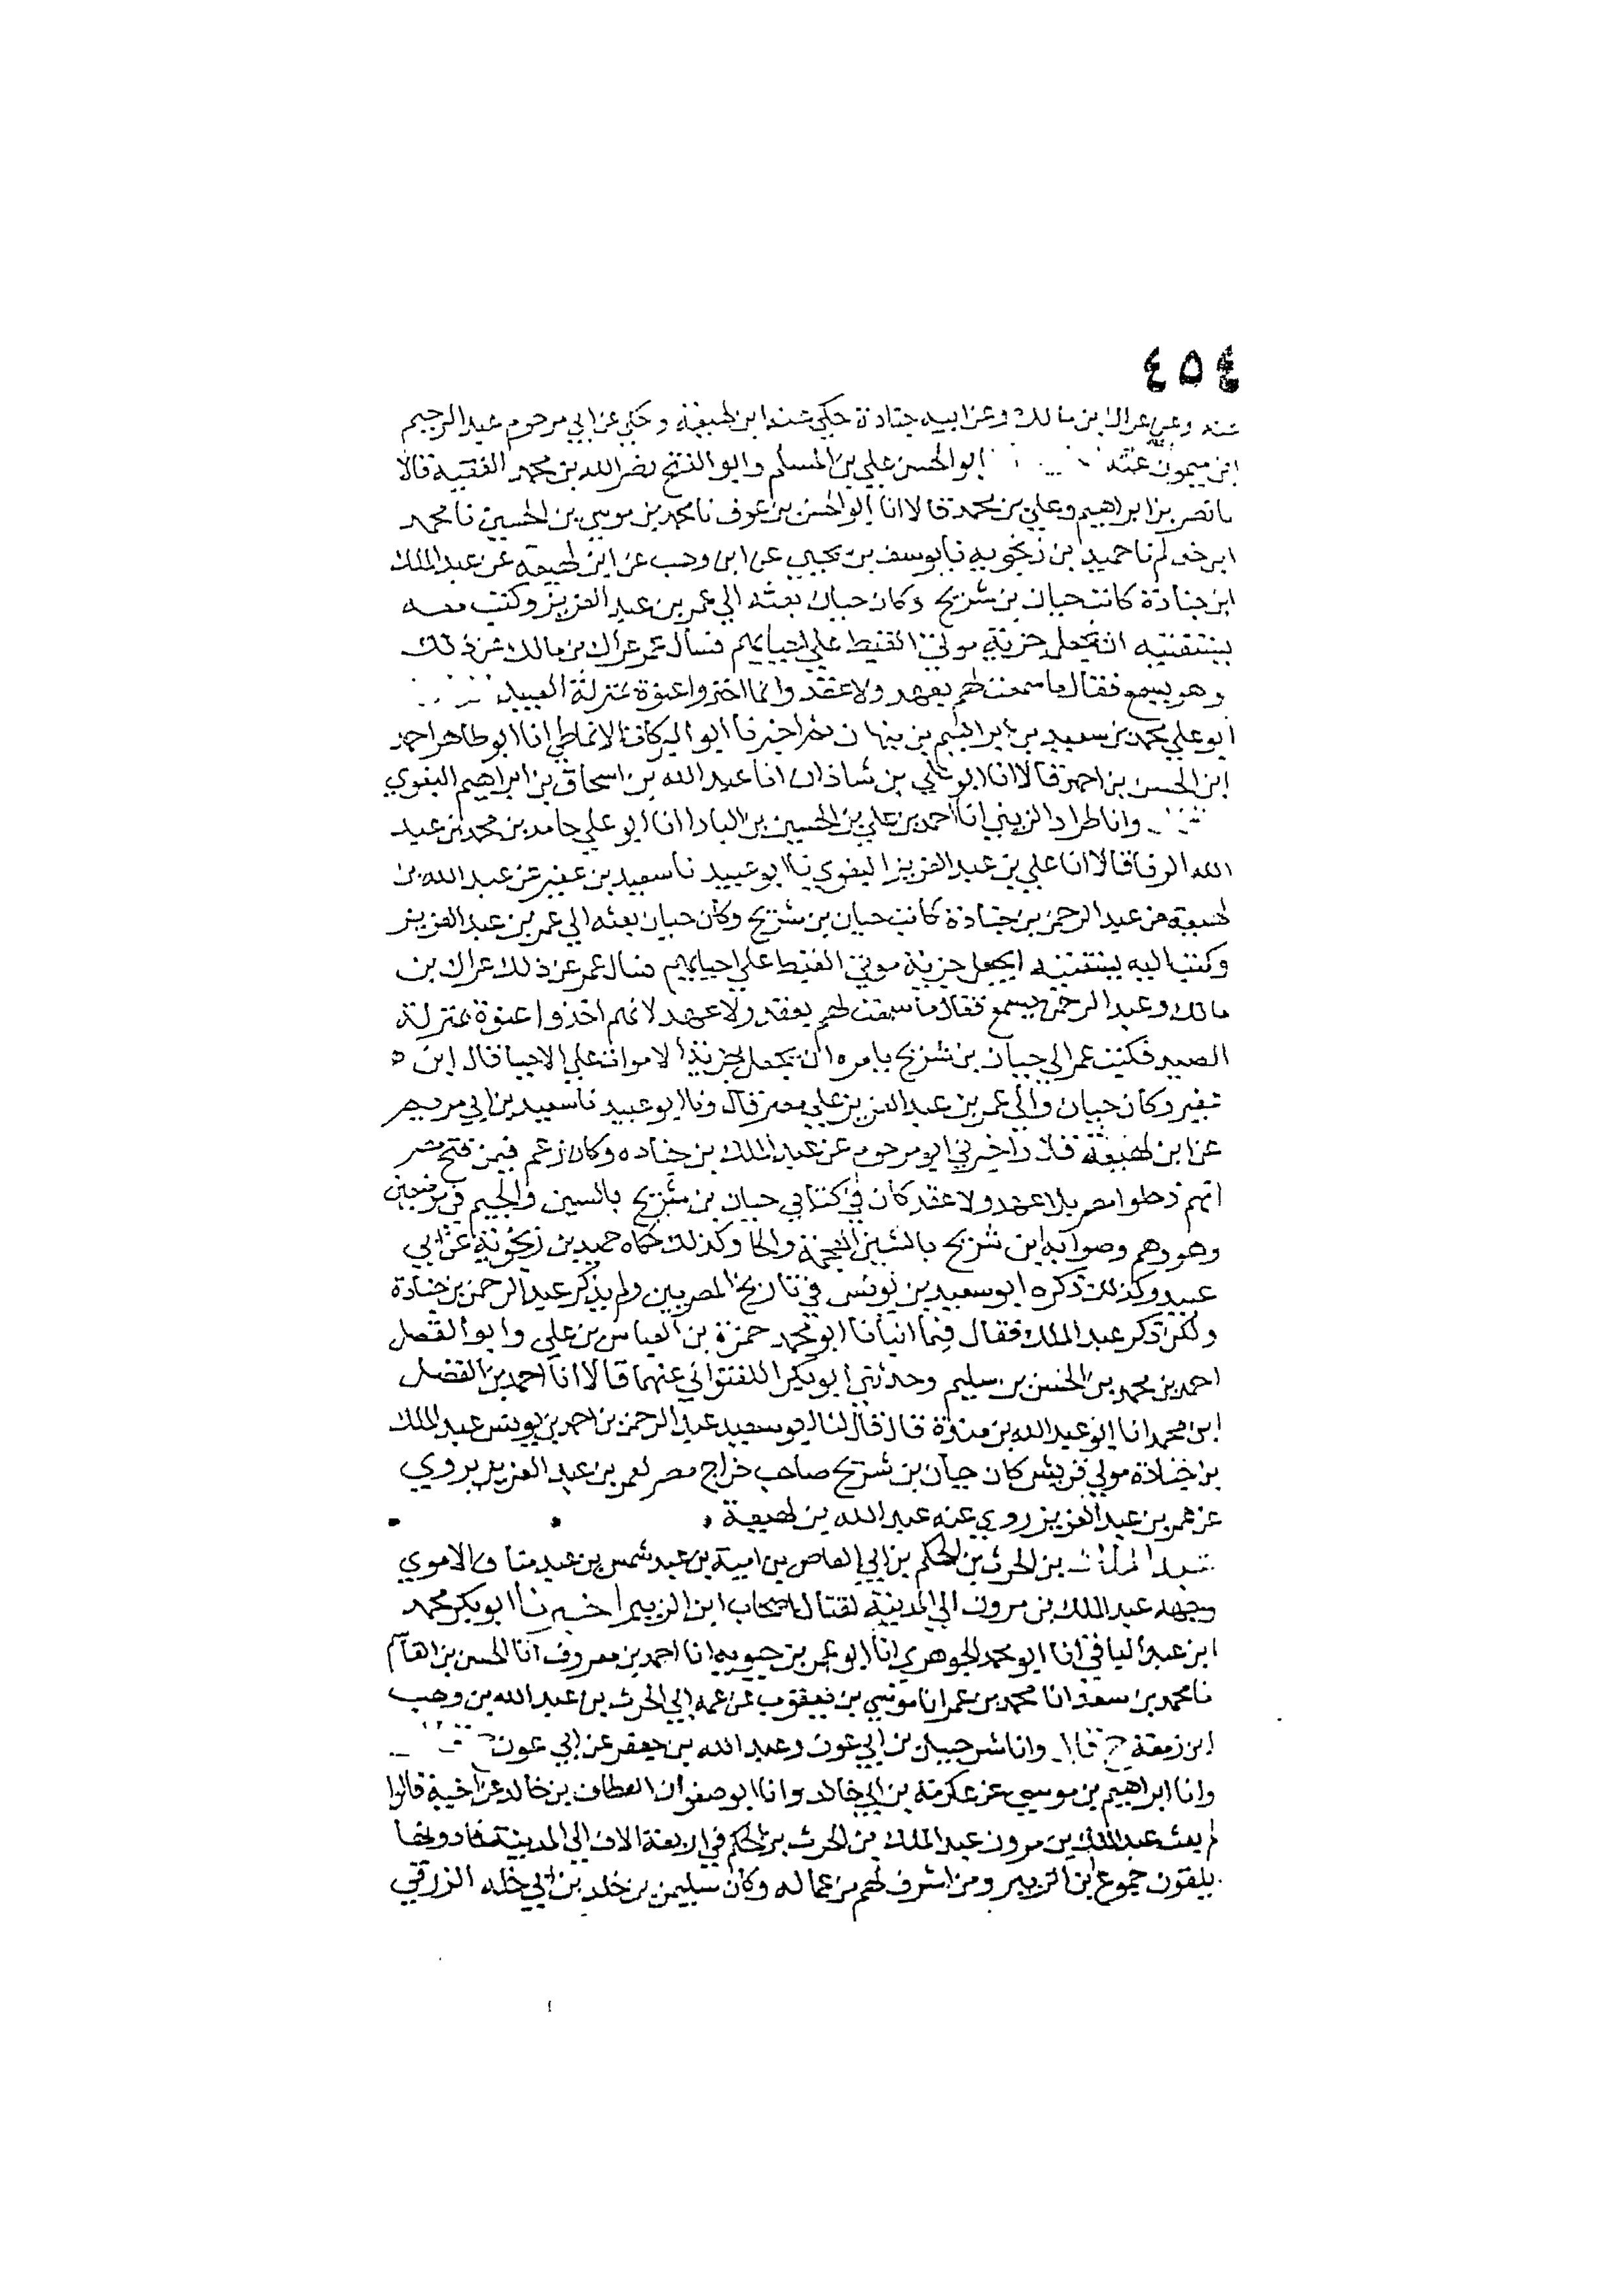 ٤٥٤
عنه وعن عراك بن مالك وعن ابيه جنادة حكي عنه ابن لهيعة وحكي عن ابي مرحوم عبد الرحيم
ابن ميمون عنه ابو الحسن علي بن المسلم وابو الفتح نصر الله بن محمد الفقيه قالا
نا نصر بن ابراهيم وعلي بن محمد قالا انا ابو الحسن بن عوف نا محمد بن موسي بن الحسين نا محمد
ابن خريم نا حميد بن زنجويه نا يوسف بن يحيي عن ابن وهب عن ابن لهيعة عن عبد الملك
ابن جنادة كاتب حيان بن شريح وكان حيان بعثه الي عمر بن عبد العزيز وكتب معه
يستفتيه ايجعل جزية موتي القبط علي احيايهم فسال عمر عراك بن مالك عن ذلك
وهو يسمع فقال ما سمعت لهم بعهد ولا عقد وانما اخذوا عنوة بمنزلة العبيد
ابو علي محمد بن سعيد بن ابراهيم بن نبهان ثم اخبرنا ابو البركات الانماطي انا ابو طاهر احمد
ابن الحسن بن احمد قالا انا ابو علي بن شاذان انا عبد الله بن اسحاق بن ابراهيم البغوي
وانا طراد الزينبي انا احمد بن علي بن الحسين بن البادا انا ابو علي حامد بن محمد بن عبد
الله الرفا قالا انا علي بن عبد العزيز البغوي نا ابو عبيد نا سعيد بن عفير عن عبد الله بن
لهيعة عن عبد الرحمن بن جنادة كاتب حيان بن شريح وكان حيان بعثه الي عمر بن عبد العزيز
وكتب اليه يستفتيه ايجعل جزية موتي القبط علي احيايهم فسال عمر عن ذلك عراك بن
مالك وعبد الرحمن يسمع فقال ما سمعت لهم بعقد ولا عهد لانهم اخذوا عنوة بمنزلة
الصيد فكتب عمر الي حيان بن شريح يامره ان يجعل جزية الاموات علي الاحيا قال ابن ه
عفير وكان حيان والي عمر بن عبد العزيز علي مصر قال ونا ابو عبيد نا سعيد بن ابي مريم
عن ابن لهيعة قال واخبرني ابو مرحوم عن عبد الملك بن جناده وكان زعم فيمن فتح مصر
انهم دخلوا مصر بلا عهد ولا عقد كان في كتابي حيان بن سريج بالسين والجيم في موضعين
وهو وهم وصوابه ابن شريح بالشين المعجمة والحا وكذلك حكاه حميد بن زنجويه عن ابي
عبيد وكذلك ذكره ابو سعيد بن يونس في تاريخ المصريين ولم يذكر عبد الرحمن بن جنادة
ولكن ذكر عبد الملك فقال فيما انبانا ابو محمد حمزة بن العباس بن علي وابو الفضل
احمد بن محمد بن الحسن بن سليم وحدثني ابو بكر اللفتواني عنهما قالا انا احمد بن الفضل
ابن محمد انا ابو عبد الله بن مندة قال قال لنا ابو سعيد عبد الرحمن بن احمد بن يونس عبد الملك
بن جنادة مولي قريش كان حيان بن شريح صاحب خراج مصر لعمر بن عبد العزيز يروي
عن عمر بن عبد العزيز روي عنه عبد الله بن لهيعة
عبد الملك بن الحرث بن الحكم بن ابي العاص بن امية بن عبد شمس بن عبد مناف الاموي
وجهه عبد الملك بن مروان الي المدينة لقتال اصحاب ابن الزبير اخبرنا ابو بكر محمد
ابن عبد الباقي انا ابو محمد الجوهري انا ابو عمر بن حيويه انا احمد بن معروف انا الحسن بن الفهم
نا محمد بن سعد انا محمد بن عمر انا موسي بن يعقوب عن عمه ابي الحرث بن عبد الله بن وهب
ابن زمعة ح قال وانا شرحبيل بن ابي عون وعبد الله بن جعفر عن ابي عون
وانا ابراهيم بن موسي عن عكرمة بن ابي خالد وانا ابو صفوان العطاف بن خالد عن اخيه قالوا
لم بعث عبد الملك بن مروان عبد الملك بن الحرث بن الحكم في اربعة الاف الي المدينة فما دونها
يلقون جموع ابن الزبير ومن اشرف لهم من عماله وكان سليمن بن خلد بن ابي خلده الزرقي